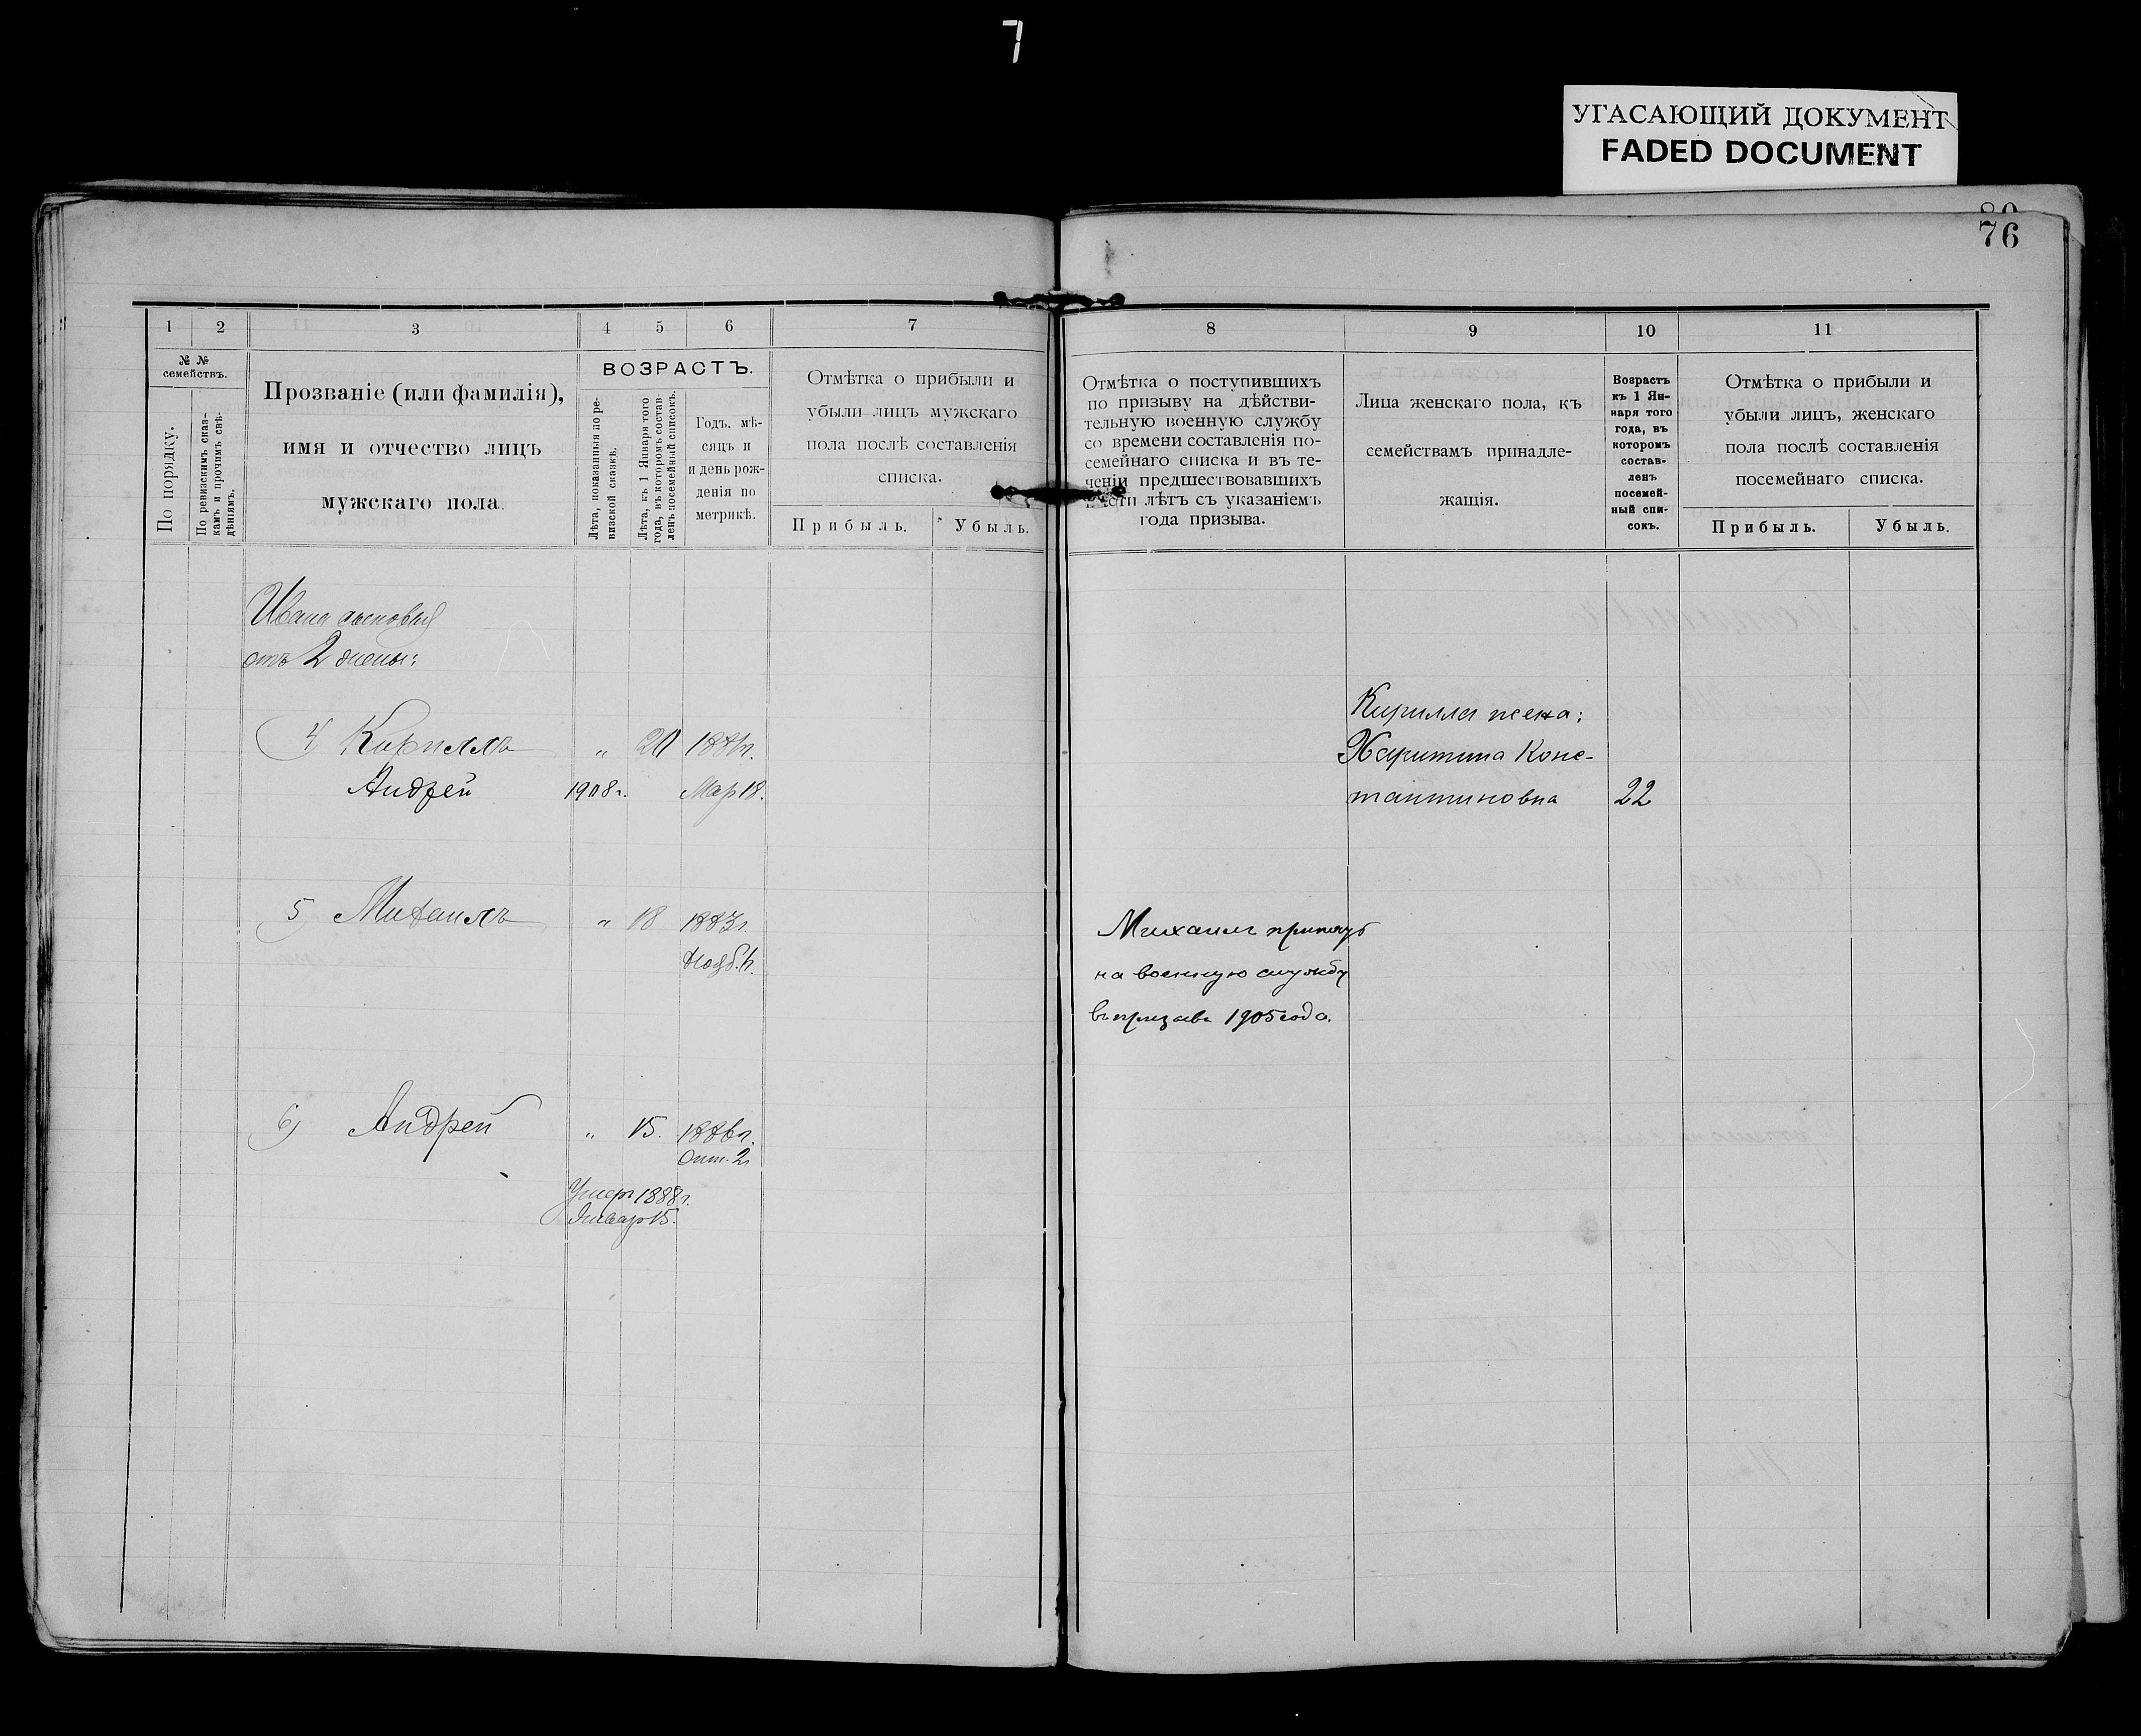 7
УГАСАЮЩИЙ ДОКУМЕНТ
FADED DOCUMENT
76
1 2 3 4 5 6 7
№ №
семействъ.
По порядку.
По ревизскимъ сказ-
камъ и прочимъ свѣ-
дѣніямъ.
Прозваніе (или фамилія),
имя и отчество лицъ
мужскаго пола.
ВОЗРАСТЪ.
Лѣта, показанныя по ре-
визской сказкѣ.
Лѣта, къ 1 Января того
года, въ которомъ состав-
ленъ посемейный списокъ.
Годъ, мѣ-
сяцъ и
и день рож-
денія по
метрикѣ.
Отмѣтка о прибыли и
убыли лицъ мужскаго
пола послѣ составленія
списка.
Прибыль. Убыль.
Ивана сыновья
отъ 2 жены:
4 Кириллъ " 20 1881г.
Андрей 1908г. Мар 18.
5) Михаилъ " 18 1883г.
Нояб.
6) Андрей " 15. 1886г.
Окт. 2
Умеръ 1888г.
Январ 15.
8 9 10 11
Отмѣтка о поступившихъ
по призыву на дѣйстви-
тельную военную службу
со времени составленія по-
семейнаго списка и въ те-
ченіи предшествовавшихъ
шести лѣтъ съ указаніемъ
года призыва.
Лица женскаго пола, къ
семействамъ принадле-
жащія.
Возрастъ
къ 1 Ян-
наря того
года, въ
которомъ
состав-
ленъ
посемей-
ный спи-
сокъ.
Отмѣтка о прибыли и
убыли лицъ, женскаго
пола послѣ составленія
посемейнаго списка.
Прибыль. Убыль.
Кирилла жена:
Харитина Конс-
тантиновна 22
Михаилъ принятъ
на военную службу
въ призывъ 1905 года.